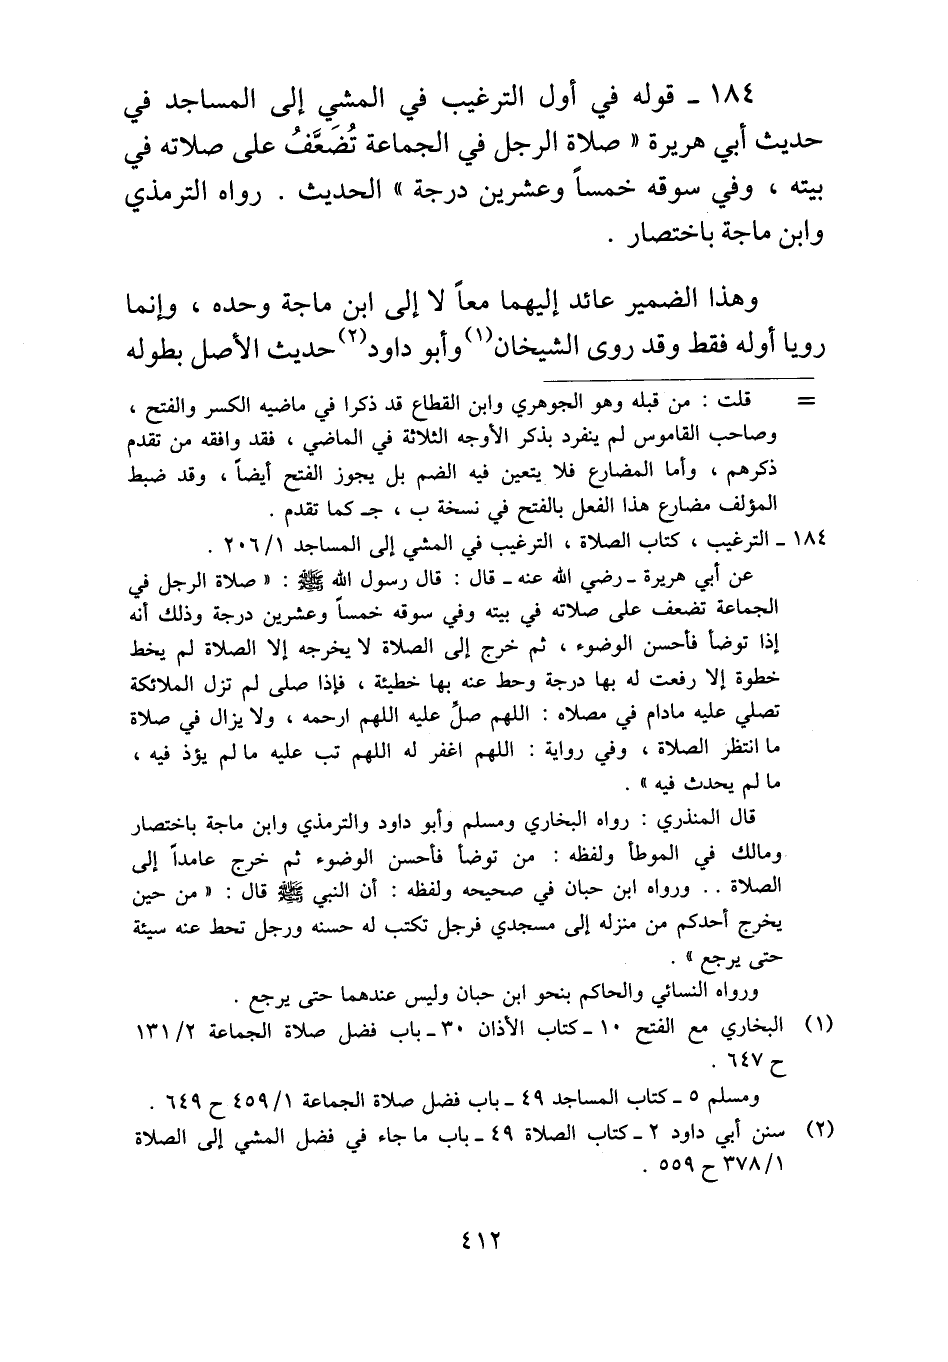 ١٨٤ ـ قوله في أول الترغيب في المشي إلى المساجد في
حديث أبي هريرة « صلاة الرجل في الجماعة تُضَعَّفُ على صلاته في
بيته ، وفي سوقه خمساً وعشرين درجة » الحديث . رواه الترمذي
وابن ماجة باختصار .
وهذا الضمير عائد إليهما معاً لا إلى ابن ماجة وحده ، وإنما
رويا أوله فقط وقد روى الشيخان(١) وأبو داود(٢) حديث الأصل بطوله
= قلت : من قبله وهو الجوهري وابن القطاع قد ذكرا في ماضيه الكسر والفتح ،
وصاحب القاموس لم ينفرد بذكر الأوجه الثلاثة في الماضي ، فقد وافقه من تقدم
ذكرهم ، وأما المضارع فلا يتعين فيه الضم بل يجوز الفتح أيضاً ، وقد ضبط
المؤلف مضارع هذا الفعل بالفتح في نسخة ب ، جـ كما تقدم .
١٨٤ ـ الترغيب ، كتاب الصلاة ، الترغيب في المشي إلى المساجد ٢٠٦/١ .
عن أبي هريرة ـ رضي الله عنه ـ قال : قال رسول الله ﷺ : « صلاة الرجل في
الجماعة تضعف على صلاته في بيته وفي سوقه خمساً وعشرين درجة وذلك أنه
إذا توضأ فأحسن الوضوء ، ثم خرج إلى الصلاة لا يخرجه إلا الصلاة لم يخط
خطوة إلا رفعت له بها درجة وحط عنه بها خطيئة ، فإذا صلى لم تزل الملائكة
تصلي عليه مادام في مصلاه : اللهم صلِّ عليه اللهم ارحمه ، ولا يزال في صلاة
ما انتظر الصلاة ، وفي رواية : اللهم اغفر له اللهم تب عليه ما لم يؤذ فيه ،
ما لم يحدث فيه » .
قال المنذري : رواه البخاري ومسلم وأبو داود والترمذي وابن ماجة باختصار
ومالك في الموطأ ولفظه : من توضأ فأحسن الوضوء ثم خرج عامداً إلى
الصلاة .. ورواه ابن حبان في صحيحه ولفظه : أن النبي ﷺ قال : « من حين
يخرج أحدكم من منزله إلى مسجدي فرجل تكتب له حسنه ورجل تحط عنه سيئة
حتى يرجع » .
ورواه النسائي والحاكم بنحو ابن حبان وليس عندهما حتى يرجع .
(١) البخاري مع الفتح ١٠ ـ كتاب الأذان ٣٠ ـ باب فضل صلاة الجماعة ١٣١/٢
ح ٦٤٧ .
ومسلم ٥ ـ كتاب المساجد ٤٩ ـ باب فضل صلاة الجماعة ٤٥٩/١ ح ٦٤٩ .
(٢) سنن أبي داود ٢ ـ كتاب الصلاة ٤٩ ـ باب ما جاء في فضل المشي إلى الصلاة
٣٧٨/١ ح ٥٥٩ .
٤١٢